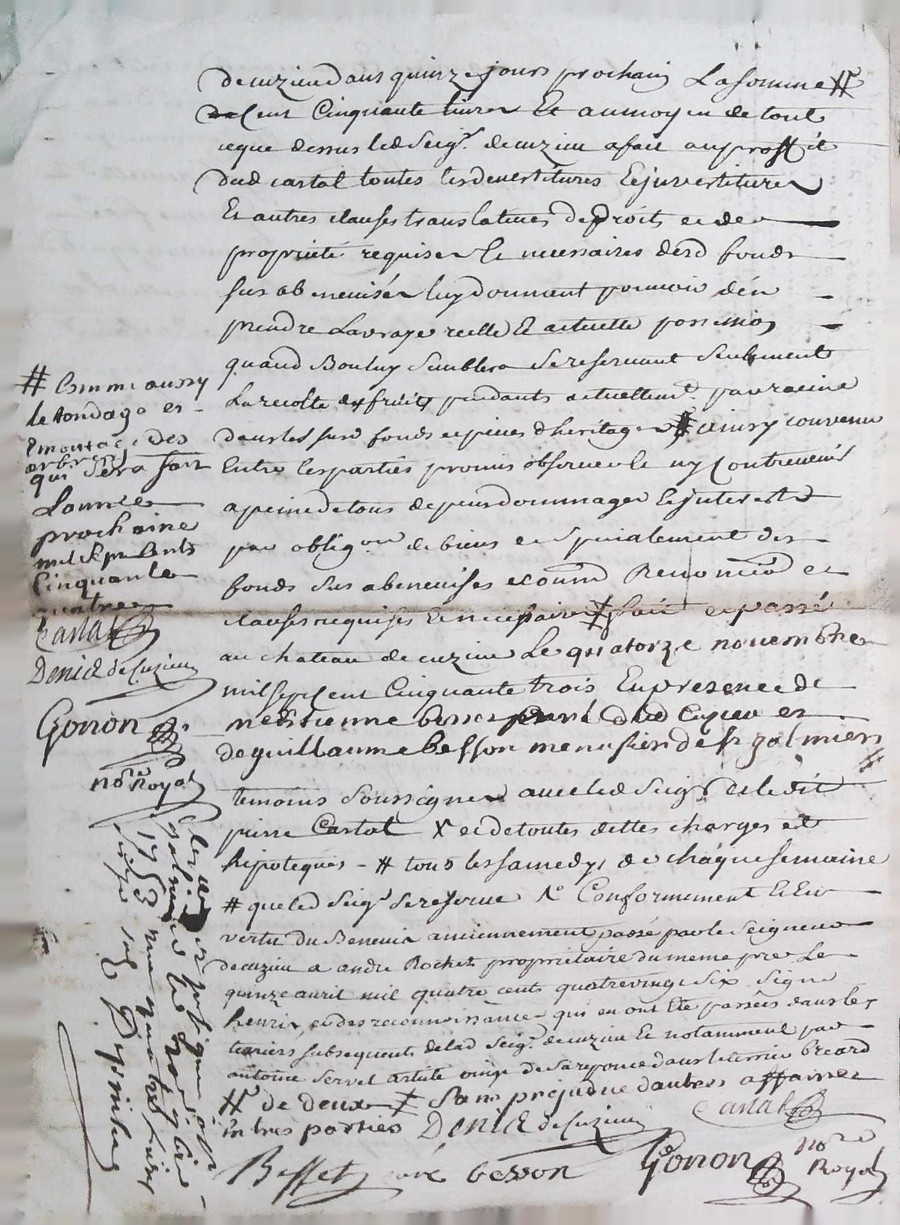 decuzieu dans quinze jours prochain La somme #
de Cent Cinquante livres Et au moyen de tout
ceque dessus led Seigr. decuzieu a fait au proffit
dud cartal toutes les devestitures Et investitures
Et autres clauses translatives de droits et de
propriété requises Et necessaires desd fonds
sus abenevisés luy donnant pouvoir d'en
prendre La vraye reelle Et actuelle possession
quand Bon luy semblera se reservant seulement
La recolte des fruits pendants actuellemt. par racine
dans les susd fonds et pieces d'heritages # ainsy convenu
Entre les parties promis observer et ne ny Contrevenir
a peine de tous depens dommages Et interests
par obligon de biens et specialement des
fonds sus abenevises et ound Renonon et
clauses requises Et necessaires # fait et passé
au chateau de cuzieu Le quatorze novembre
mil sept cent Cinquante trois En presence de
me Etienne besset curé dud Cuzieu et
de guillaume besson menusier de st galmier #
temoins soussignes avec led Seigr et ledit
pierre Cartal X et de toutes dettes charges et
hipoteques - # tous les samedys de chaque semaine
# que led Seigr se reserve Conformement Et En
vertu du Benevis anciennement passé par le Seigneur
decuzieu a andre Rochet proprietaire du meme pré Le
quinze avril mil quatre cents quatrevingt six signé
henrix et des reconnoissances qui en ont Eté passées dans les
terriers subsequents de lad Seigrie decuzieu Et notamment par
antoine Servel
# de deux # Sans prejudice d'autres affaires
Entres parties Denis de Cuzieu Cartal
Besset curé besson Gonon nore
Royal
# Comme aussy
le tondage et
Emontage des
arbres
qui sera fait
L'année
prochaine
mil sept Cents
Cinquante
quatre
Cartal
Denis de Cuzieu
Gonon
nore Royal
1753